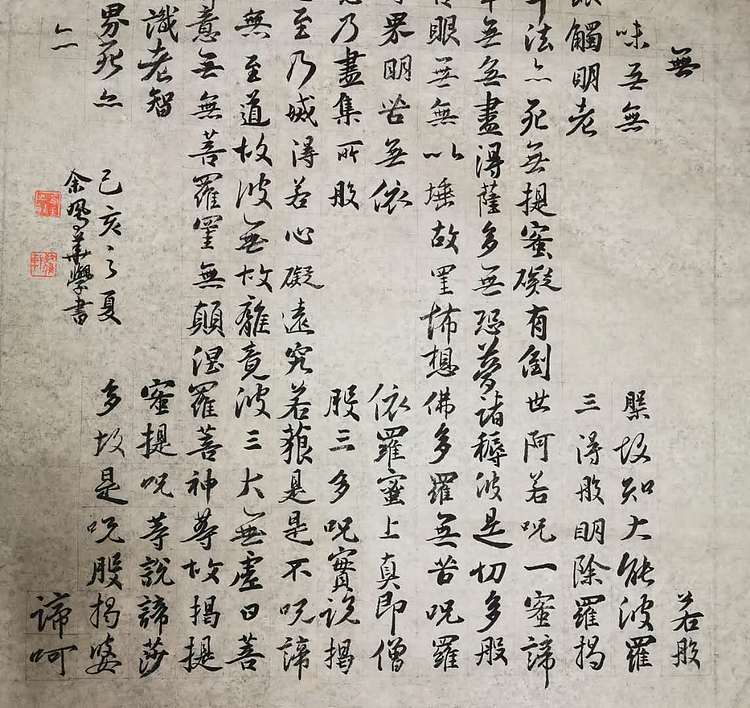 無 若般
味无無 槃故知大能波羅
眼觸明老 三得般明除羅揭
法亦死無提蜜礙有倒世阿若咒一蜜諦
無無盡得薩多無恐夢諸耨波是切多般
眼無無以埵故罣怖想佛多羅無苦咒羅
界明苦無依 依羅蜜上真即僧
乃盡集所般 般三多咒實說揭
至乃滅得若心礙遠究若藐是是不咒諦
無至道故波無故離竟波三大無虛曰菩
意無無菩羅罣無顛涅羅菩神等故揭提
識老智 蜜提咒等說諦莎
界死亦 多故是咒般揭婆
亦 諦訶
己亥之夏
余鳳華學書